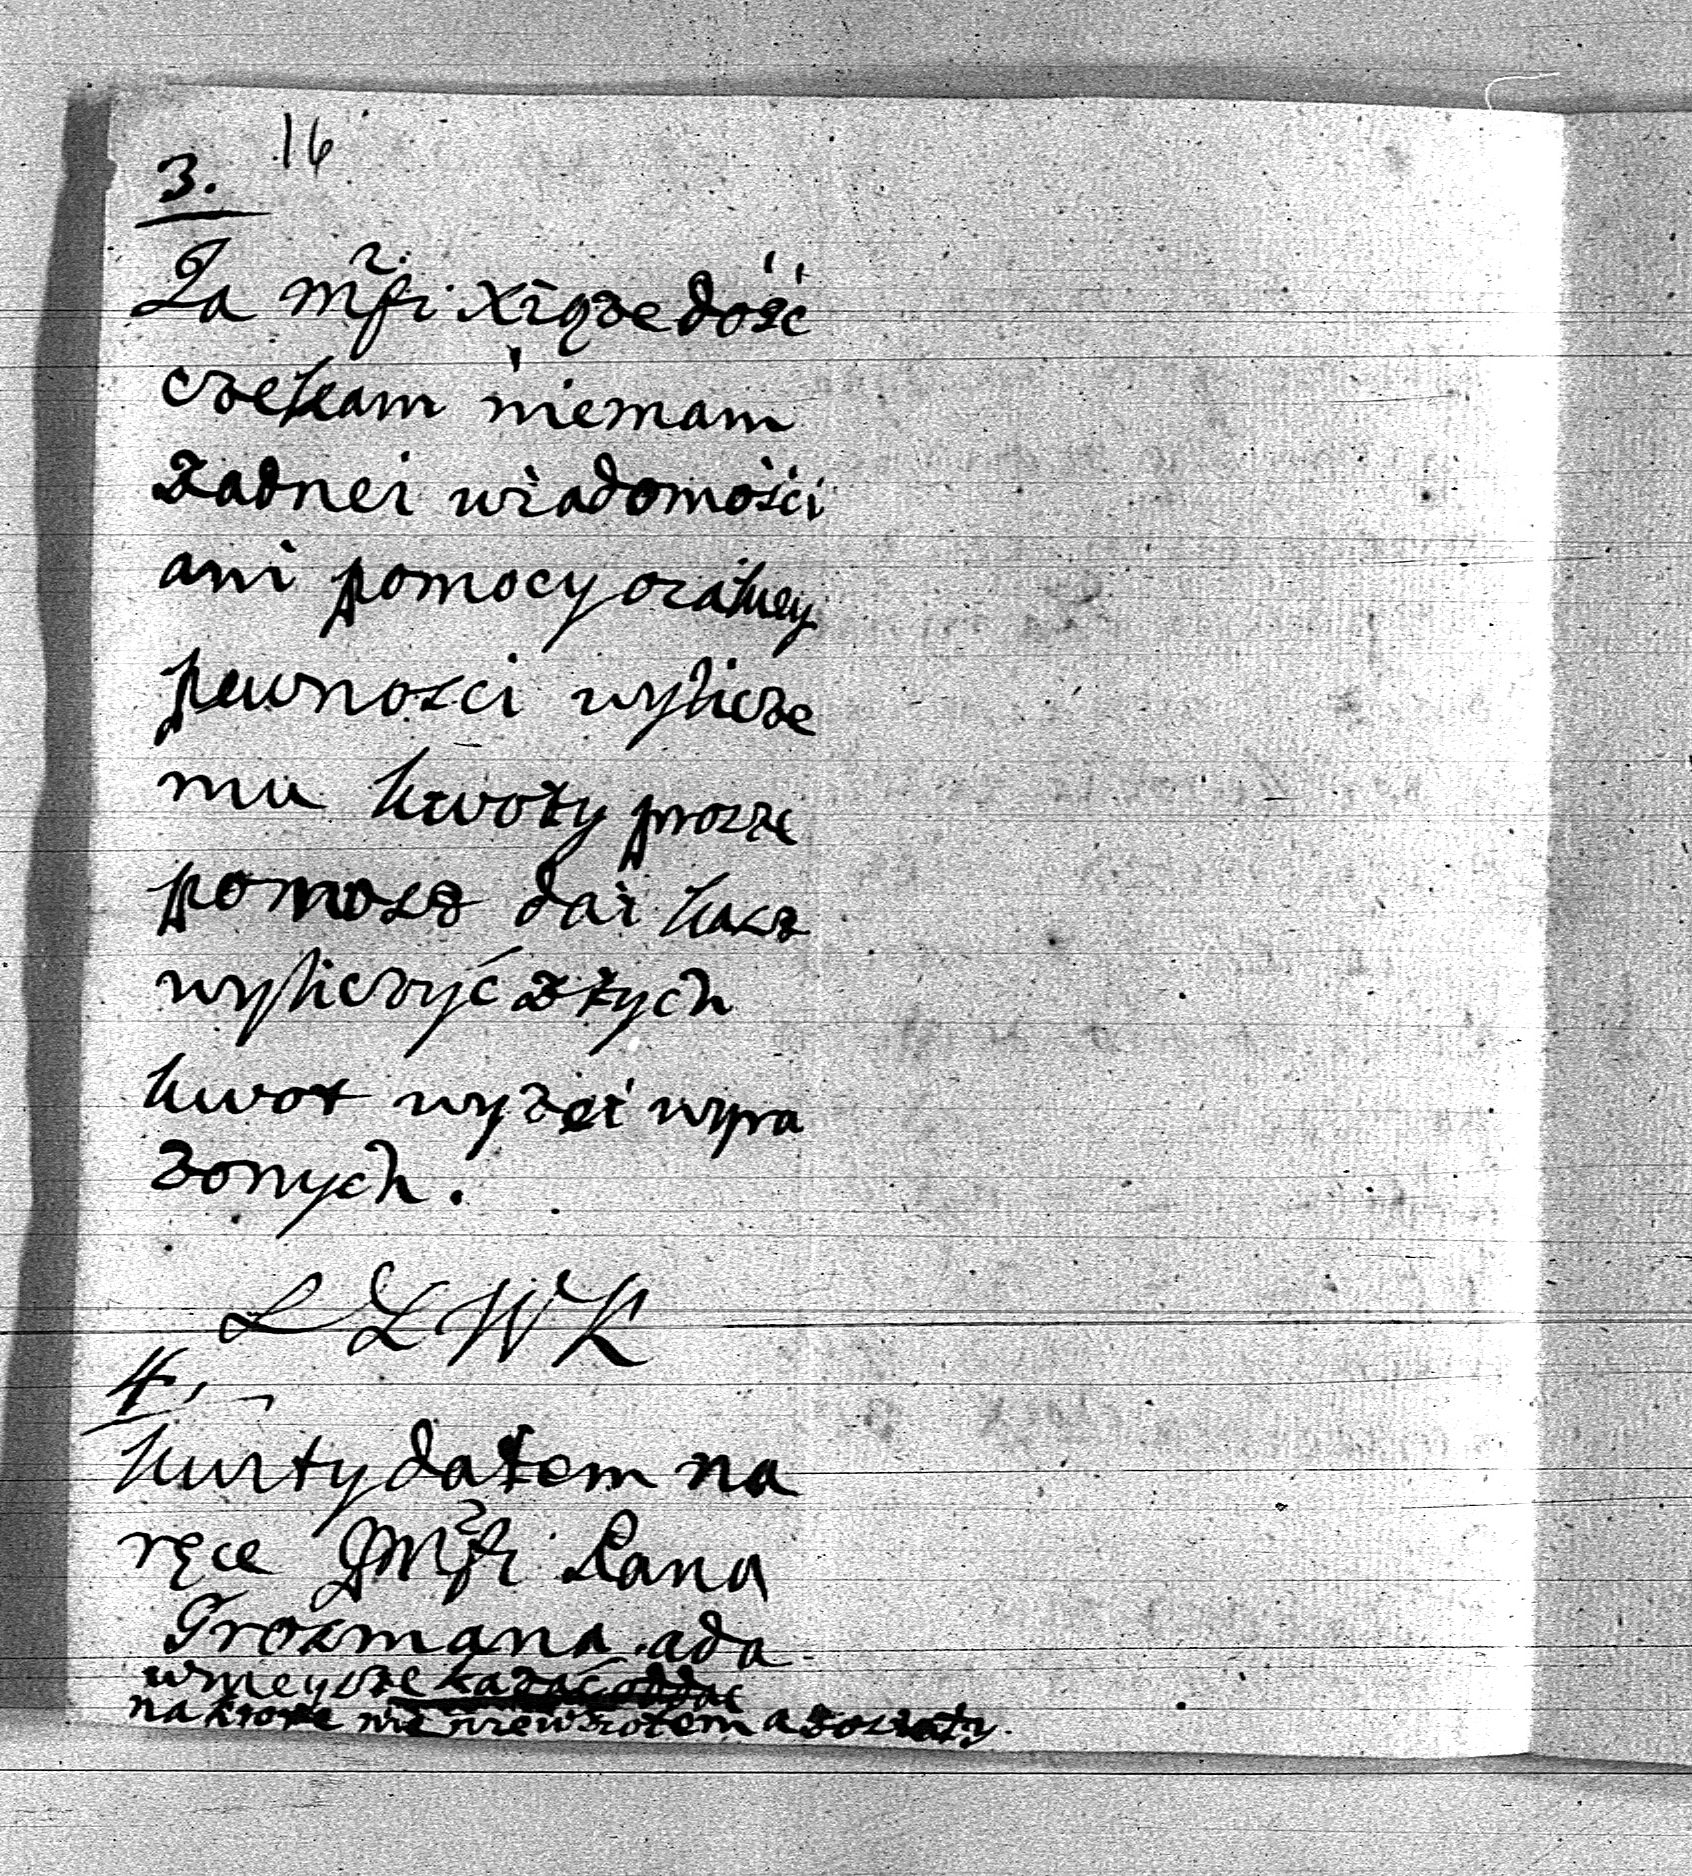 16
3.
Za Mści Xiąze dość
czekam niemam
Zadnei wiadomości
ani pomocy ozałuey
pewnosci wylicze
mu kwoty prosze
pomosz dai kasz
wyliczyć złych
kwot wyzei wyra
zonych.
L Z W K
4.
kurty dałem na
ręce JMści Pana
Grosmana ada
wmeysze kazać oddac
na ktore nie wziołem a zostaty.